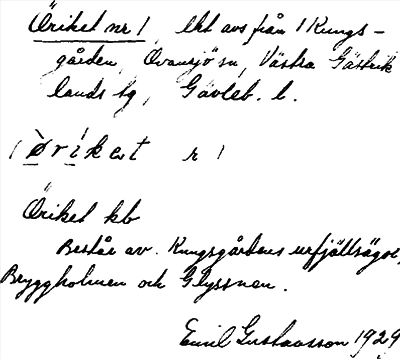 Öriket nr 1, lht avs från 1 Kungs-
gården, Ovansjö sn, Västra Gästrik
lands tg, Gävleb. l.
Öriket kb
Består av. Kungsgårdens urfjällsägor,
Bryggholmen och Glyssnen.
Emil Gustavsson 1929